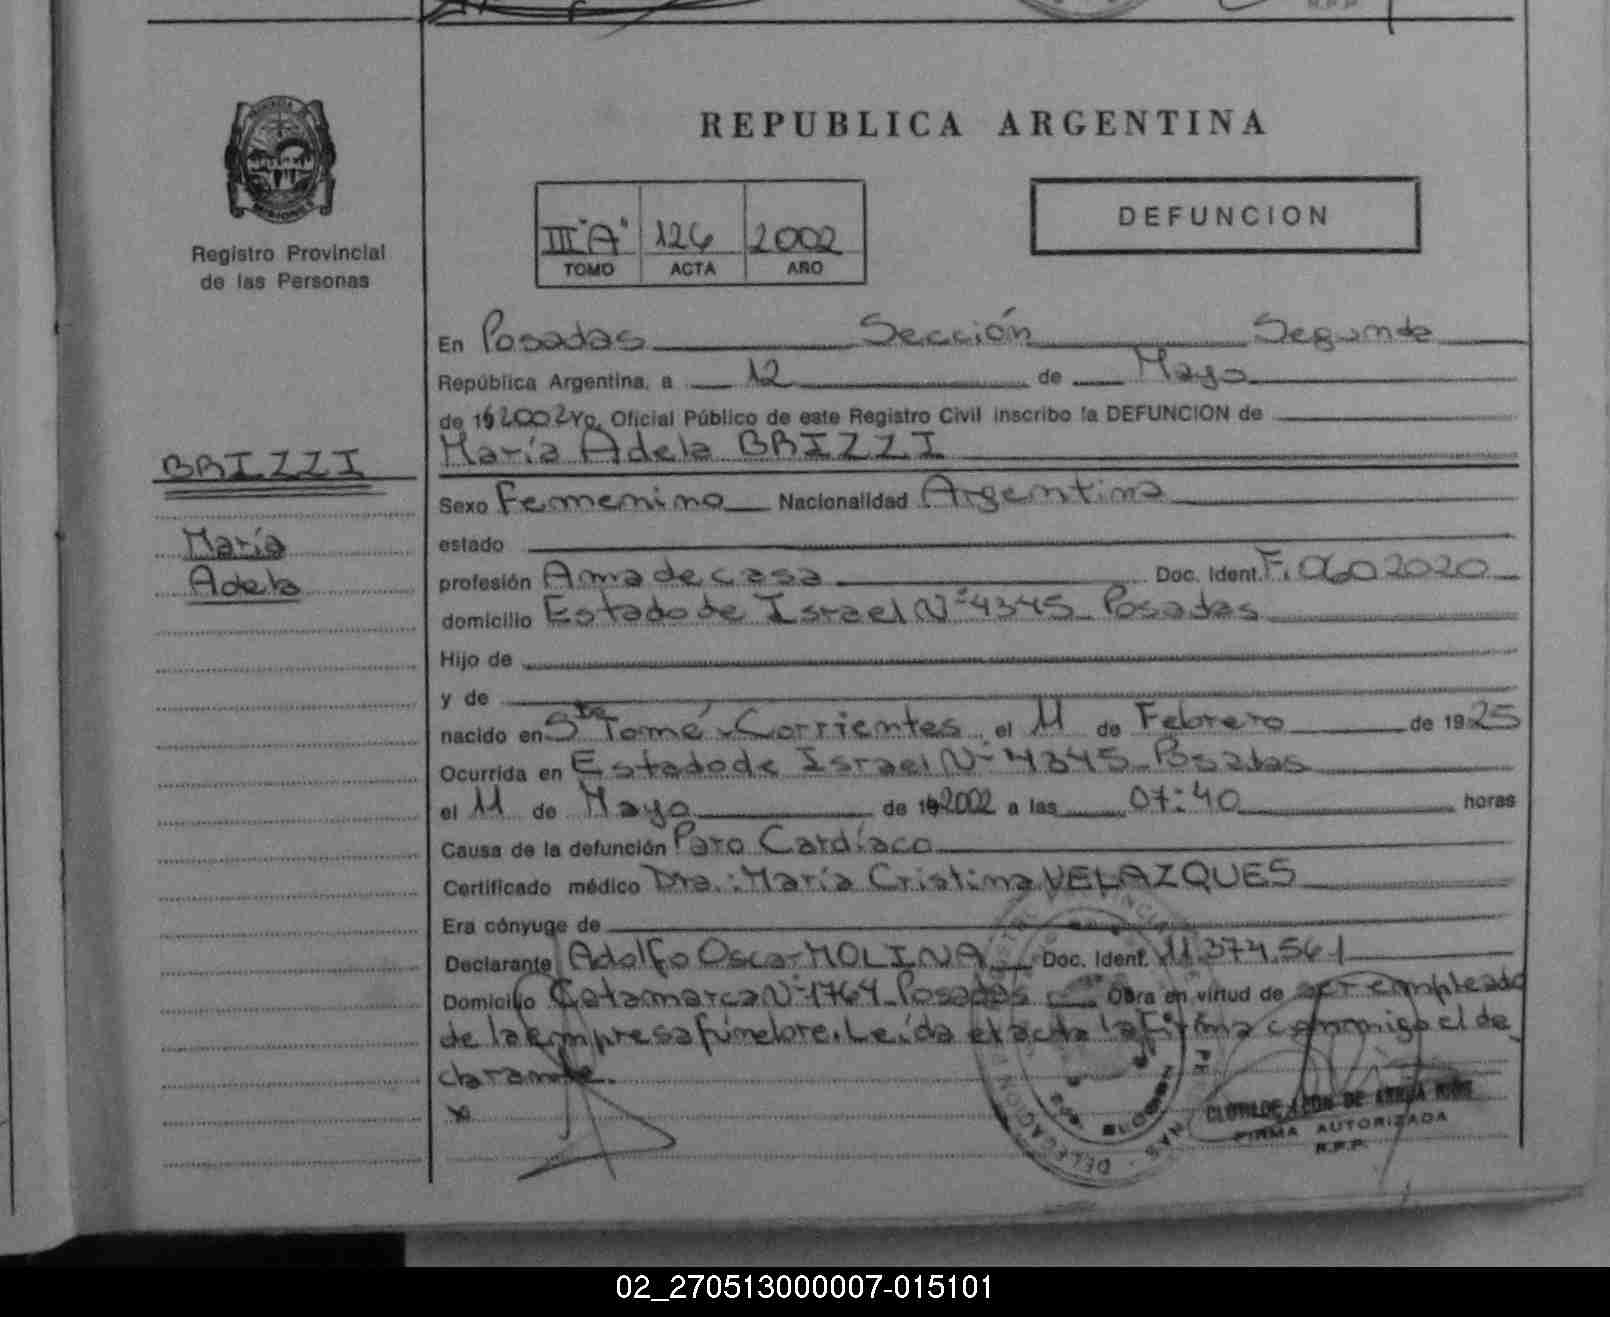 REPUBLICA ARGENTINA
PROVINCIA DE MISIONES
Registro Provincial
de las Personas
III "A" 126 2002
TOMO ACTA AÑO
DEFUNCION
En Posadas Sección Segunda
República Argentina, a 12 de Mayo
de 19 2002 Yo, Oficial Público de este Registro Civil inscribo la DEFUNCION de
María Adela BRIZZI
BRIZZI
María
Adela
Sexo Femenino Nacionalidad Argentina
estado
profesión Ama de casa Doc. Ident. F. 0602020
domicilio Estado de Israel Nº 4345 Posadas
Hijo de
y de
nacido en Sto Tomé - Corrientes el 11 de Febrero de 1925
Ocurrida en Estado de Israel Nº 4345 Posadas
el 11 de Mayo de 19 2002 a las 07:40 horas
Causa de la defunción Paro Cardíaco
Certificado médico Dra.: María Cristina VELAZQUES
Era cónyuge de
Declarante Adolfo Oscar MOLINA Doc. Ident. 11.374.561
Domicilio Catamarca Nº 1764 Posadas Obra en virtud de ser empleado
de la empresa fúnebre. Leída el acta la firma conmigo el de
clarante.
CLOTILDE LEON DE
FIRMA AUTORIZADA
R.P.P.
02_270513000007-015101